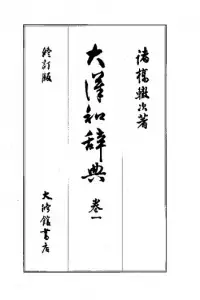 諸橋轍次著
大漢和辞典
巻一
修訂版
大修館書店